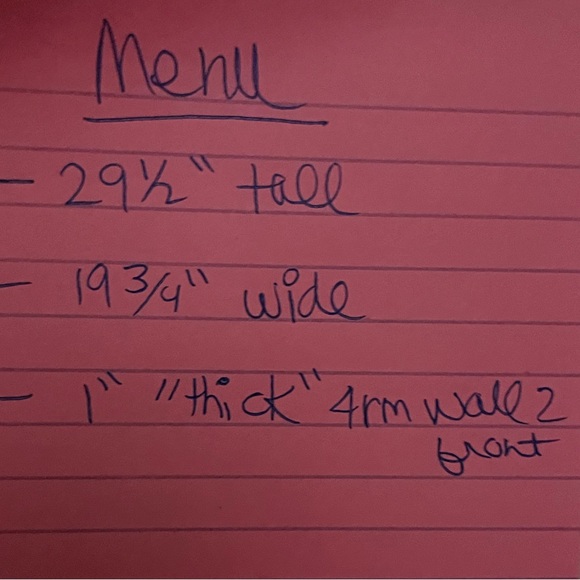 Menu
- 29 1/2" tall
- 19 3/4" wide
- 1" "thick" 4rm wall 2
front